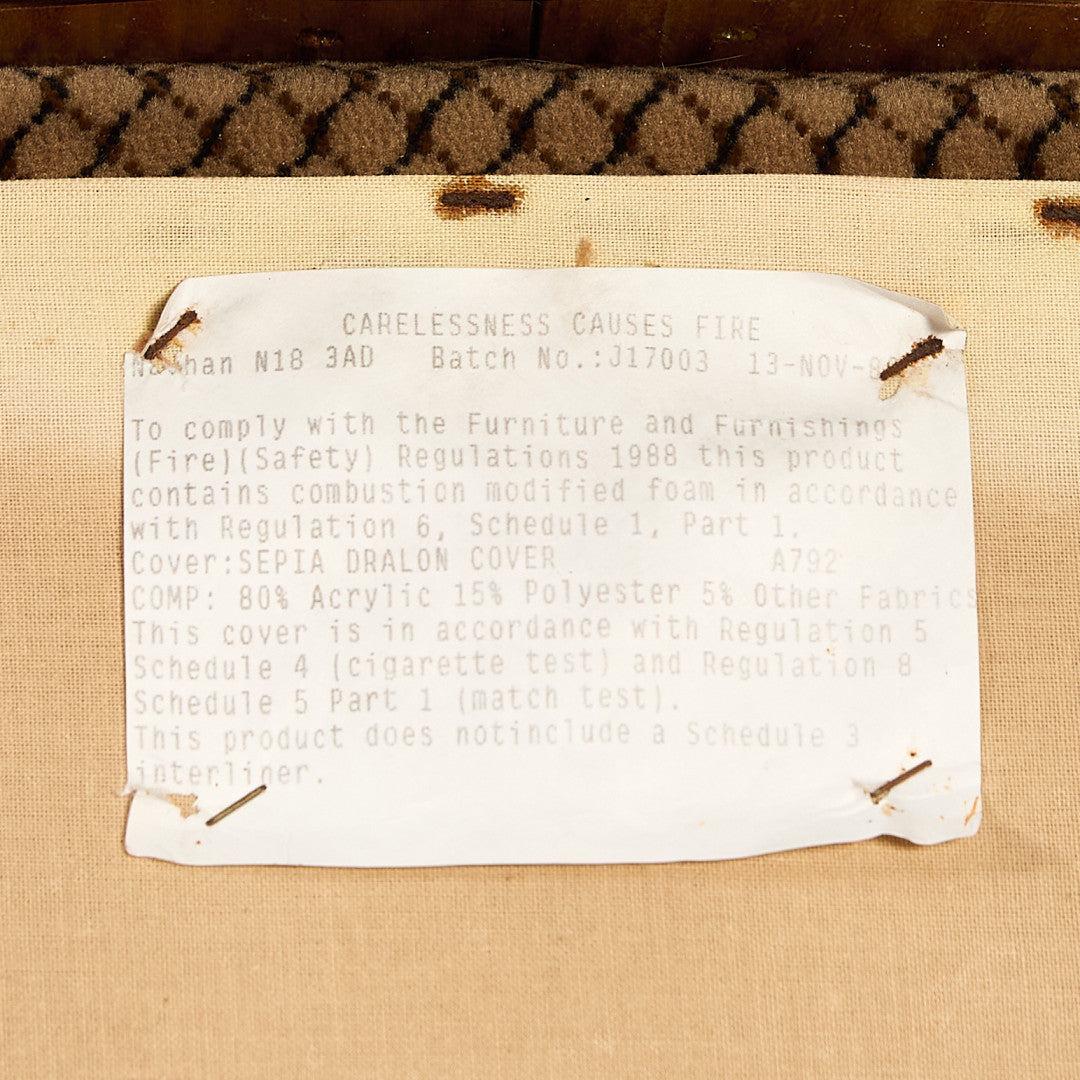 CARELESSNESS CAUSES FIRE
N18 3AD Batch No.:J17003 13-NOV-
To comply with the Furniture and Furnishings
(Fire)(Safety) Regulations 1988 this product
contains combustion modified foam in accordance
with Regulation 6, Schedule 1, Part 1.
Cover:SEPIA DRALON COVER A792
COMP: 80% Acrylic 15% Polyester 5% Other Fabrics
This cover is in accordance with Regulation 5
Schedule 4 (cigarette test) and Regulation 8
Schedule 5 Part 1 (match test).
This product does notinclude a Schedule 3
interliner.